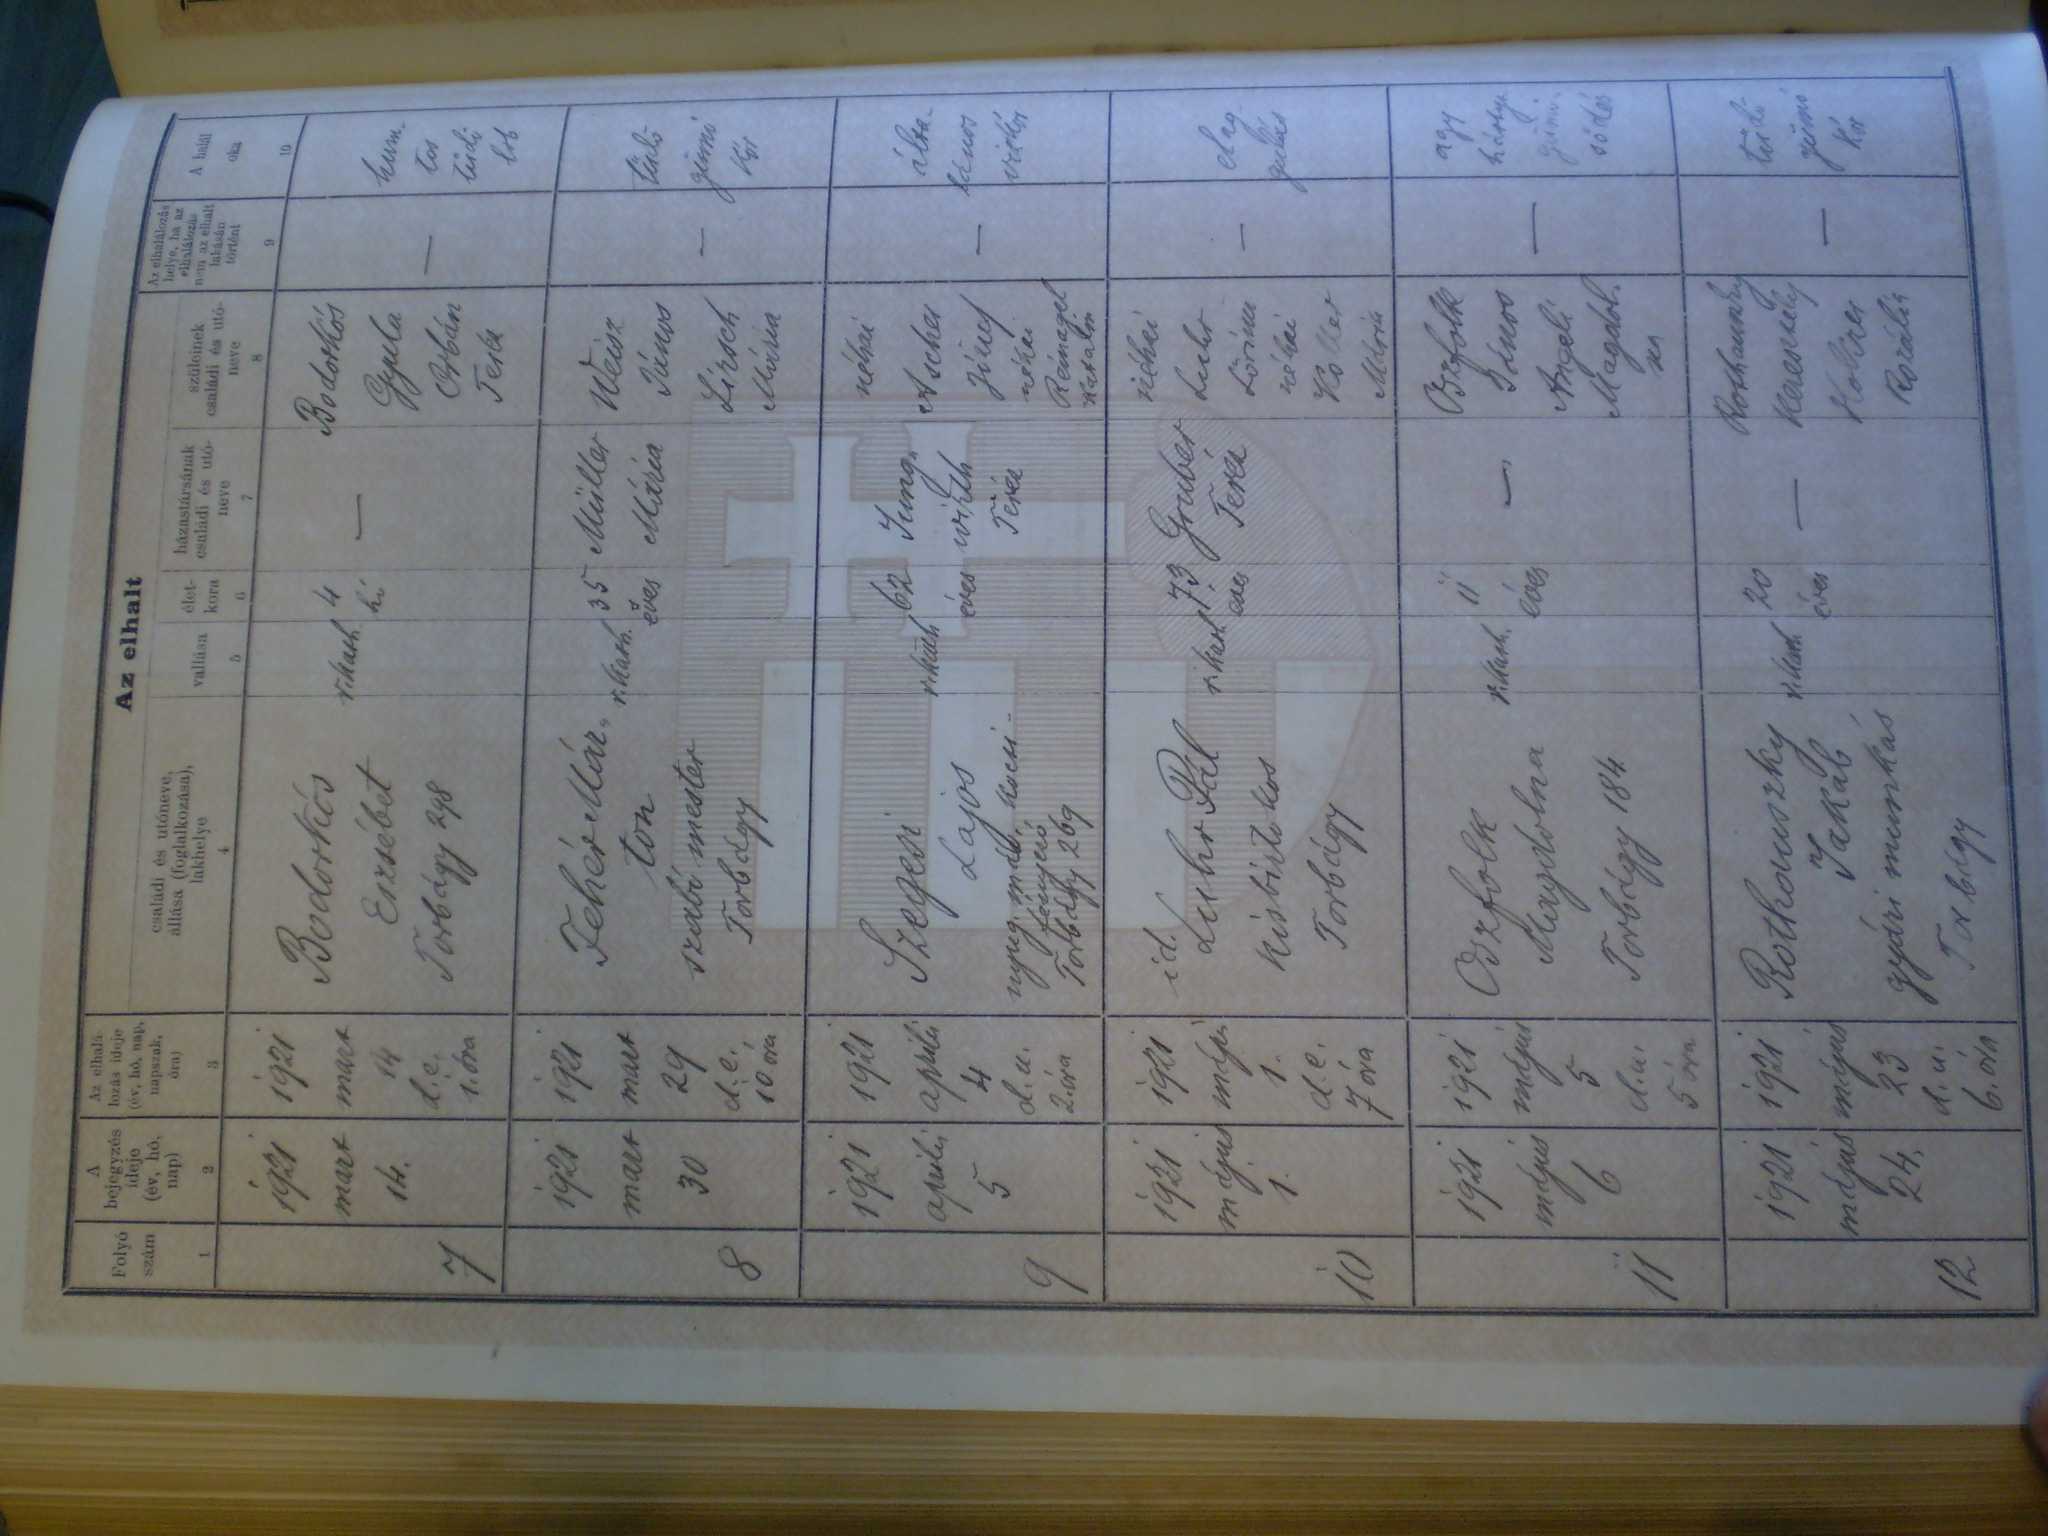 Az elhalt
Folyó
szám
A
bejegyzés
ideje
(év, hó,
nap)
Az elhalá-
lozás ideje
(év, hó, nap,
napszak,
óra)
családi és utóneve,
állása (foglalkozása),
lakhelye
vallása
élet-
kora
házastársának
családi és utó-
neve
szüleinek
családi és utó-
neve
Az elhalálozás
helye, ha az
elhalálozás
nem az elhalt
lakásán
történt
A halál
oka
1
2
3
4
5
6
7
8
9
10
7
1921
mart
14.
1921
mart
14
d.e.
1. óra
Bodorkós
Erzsébet
Torbágy 298
r. kath.
4
hó
—
Bodorkós
Gyula
Orbán
Teréz
—
huru-
tos
tüdő
lob
8
1921
mart
30
1921
mart
29
d.e.
10. óra
Fehér Már-
ton
szabó mester
Torbágy
r. kath.
35
éves
Müller
Mária
Weisz
János
Lirsch
Mária
—
tüdő
gümő
kór
9
1921
április
5
1921
április
4
d.u.
2. óra
Szegeri
Lajos
Torbágy 269
r. kath
62
éves
Jung-
wirth
Teréz
néhai
Ascher
József
néhai
Katalin
—
álta-
lános
vizkór
10
1921
május
1.
1921
május
1.
d.e.
7 óra
id.
Luhr Pál
kisbirtokos
Torbágy
r. kath
73
éves
Gruber
Teréz
néhai
Luhr
Lőrinc
néhai
Koller
Mária
—
elag-
gulás
11
1921
május
6
1921
május
5
d.u.
5 óra
Oszfolk
Magdolna
Torbágy 184.
r. kath.
11
éves
—
Oszfolk
János
Angeli
Magdol-
na
—
agy
hártya
gümő-
södés
12
1921
május
24.
1921
május
23
d.u.
6. óra
Rothauszky
Jakab
gyári munkás
Torbágy
r. kath
20
éves
—
Rothauszky
Holczer
Rozália
—
tüdő-
gümő
kór